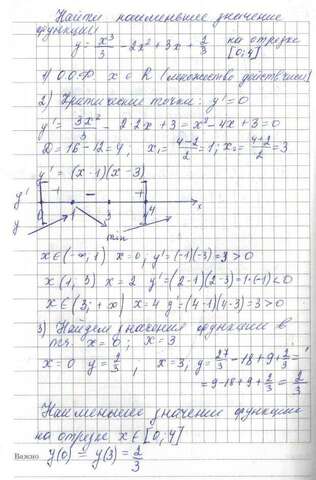 Найти наименьшее значение
функции
y = x³/3 - 2x² + 3x + 2/3 на отрезке [0; 4]
1) О О Ф x ∈ R (множество действ чисел)
2) Критические точки: y' = 0
y' = 3x²/3 - 2·2x + 3 = x² - 4x + 3 = 0
D = 16 - 12 = 4, x₁ = (4-2)/2 = 1; x₂ = (4+2)/2 = 3
y' = (x-1)(x-3)
y' + − + x
0 1 3 4
y min
x ∈ (-∞, 1) x = 0, y' = (-1)(-3) = 3 > 0
x (1, 3) x = 2 y' = (2-1)(2-3) = 1·(-1) < 0
x ∈ (3; +∞) x = 4 y = (4-1)(4-3) = 3 > 0
3) Найдем значения функции в
точ. x = 0; x = 3
x = 0 y = 2/3, x = 3, y = 27/3 - 18 + 9 + 2/3 =
= 9 - 18 + 9 + 2/3 = 2/3
Наименьшее значение функции
на отрезке x ∈ [0; 4]
Важно y(0) = y(3) = 2/3